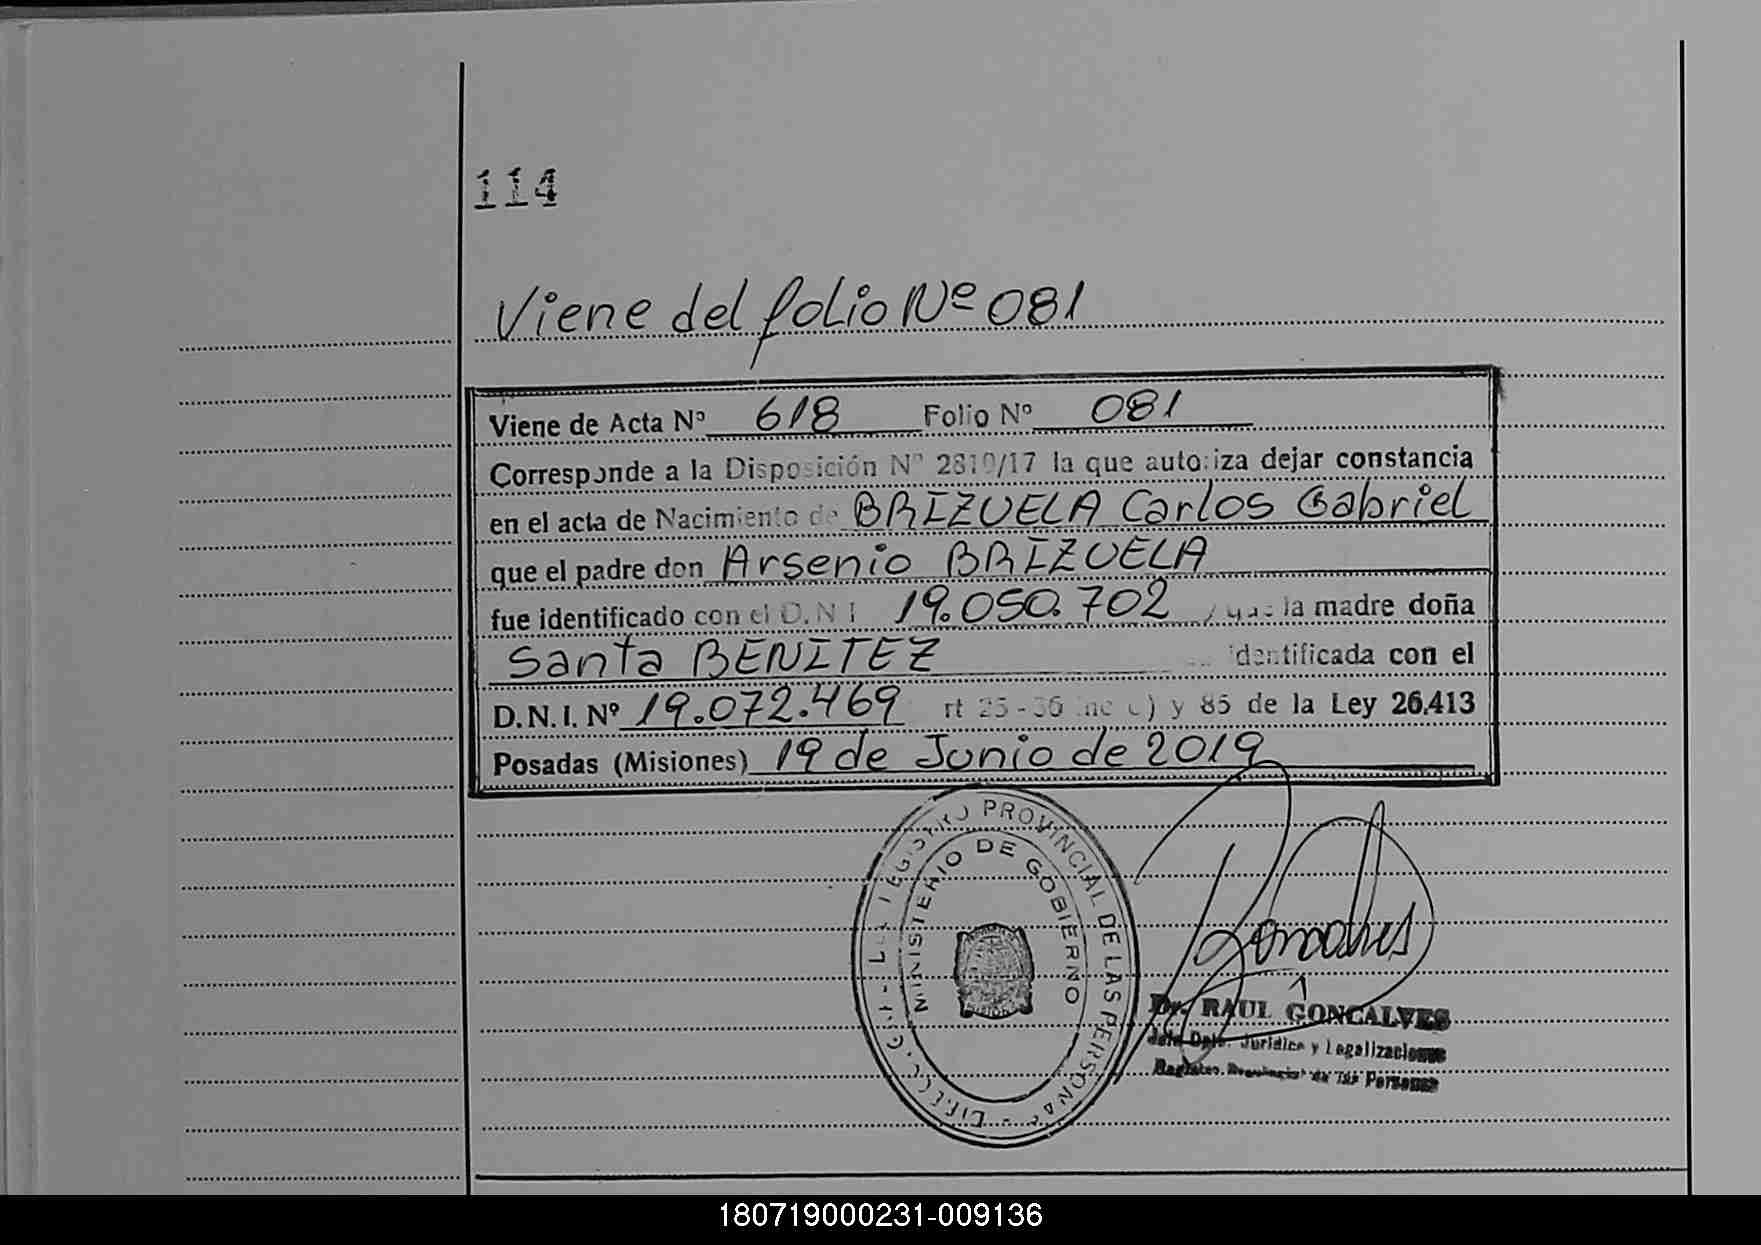 114
Viene del folio Nº 081
Viene de Acta Nº 618 Folio Nº 081
Corresponde a la Disposición Nº 2810/17 la que autoriza dejar constancia
en el acta de Nacimiento de BRIZUELA Carlos Gabriel
que el padre don Arsenio BRIZUELA
fue identificado con el D.N.I 19.050.702 , que la madre doña
Santa BENITEZ identificada con el
D.N.I. Nº 19.072.469 rt 25-36 inc c) y 85 de la Ley 26.413
Posadas (Misiones) 19 de Junio de 2019
REGISTRO PROVINCIAL DE LAS PERSONAS
MINISTERIO DE GOBIERNO
Goncalves
Dr. RAUL GONCALVES
Jefe Dpto. Jurídico y Legalizaciones
Registro Provincial de las Personas
180719000231-009136